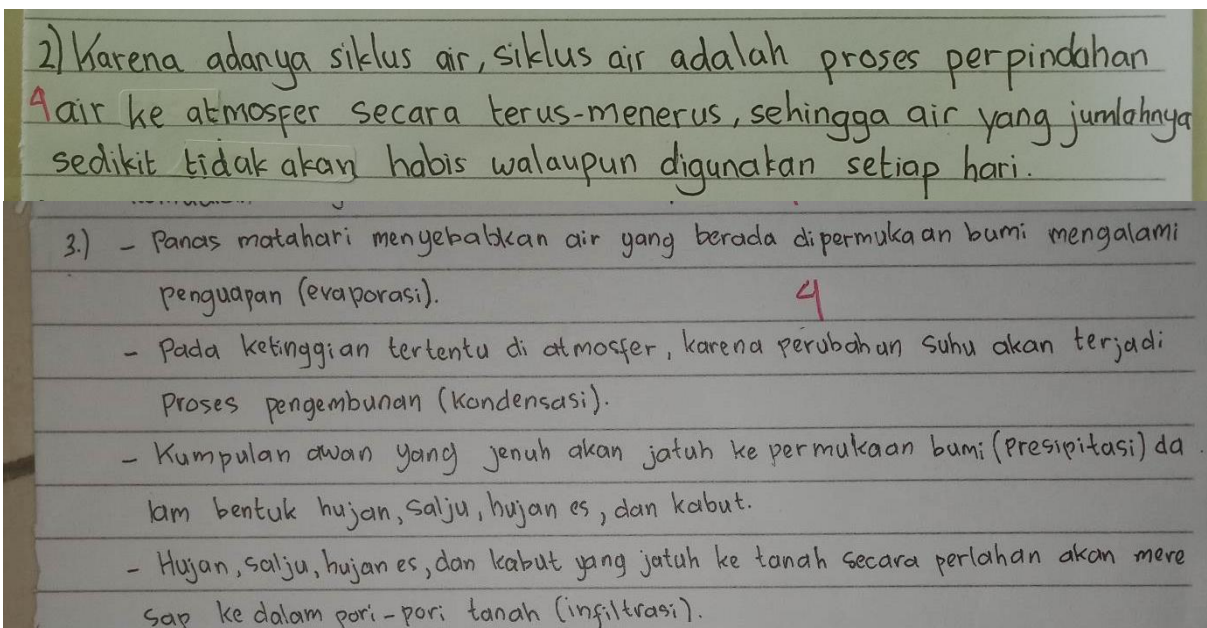 2) Karena adanya siklus air, siklus air adalah proses perpindahan
4 air ke atmosfer secara terus-menerus, sehingga air yang jumlahnya
sedikit tidak akan habis walaupun digunakan setiap hari.
3.) - Panas matahari menyebabkan air yang berada dipermukaan bumi mengalami
penguapan (evaporasi).
4
- Pada ketinggian tertentu di atmosfer, karena perubahan suhu akan terjadi
Proses pengembunan (kondensasi).
- Kumpulan awan yang jenuh akan jatuh ke permukaan bumi (Presipitasi) da
lam bentuk hujan, salju, hujan es, dan kabut.
- Hujan, salju, hujan es, dan kabut yang jatuh ke tanah secara perlahan akan mere
sap ke dalam pori-pori tanah (infiltrasi).